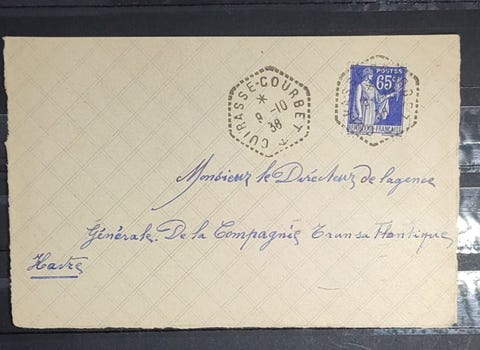 CUIRASSE-COURBET
9.-10
38
POSTES
65c
Monsieur le Directeur de l'agence
Générale. De la Compagnie Transatlantique
Havre